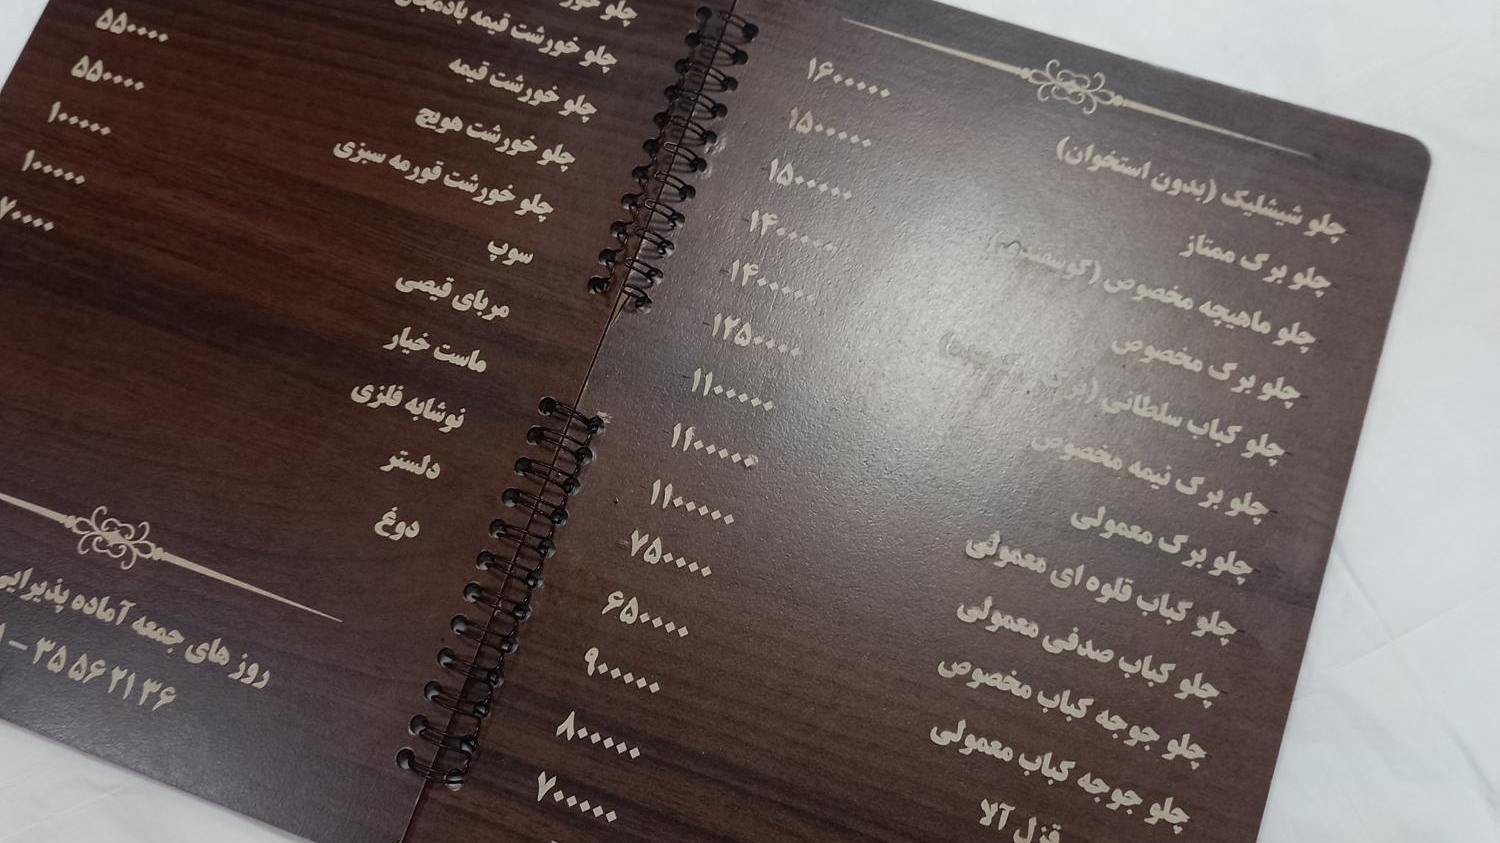 چلو شیشلیک (بدون استخوان)
۱۶۰۰۰۰۰
چلو برگ ممتاز
۱۵۰۰۰۰۰
چلو ماهیچه مخصوص (گوسفندی)
۱۵۰۰۰۰۰
چلو برگ مخصوص
۱۴۰۰۰۰۰
چلو کباب سلطانی
۱۴۰۰۰۰۰
چلو برگ نیمه مخصوص
۱۲۵۰۰۰۰
چلو برگ معمولی
۱۱۰۰۰۰۰
چلو کباب قلوه ای معمولی
۱۱۰۰۰۰۰
چلو کباب صدفی معمولی
۱۱۰۰۰۰۰
چلو جوجه کباب مخصوص
۷۵۰۰۰۰
چلو جوجه کباب معمولی
۶۵۰۰۰۰
قزل آلا
۹۰۰۰۰۰
۸۰۰۰۰۰
۷۰۰۰۰۰
چلو
چلو خورشت قیمه بادمجان
چلو خورشت قیمه
چلو خورشت هویج
چلو خورشت قورمه سبزی
۵۵۰۰۰۰
سوپ
۵۵۰۰۰۰
مربای قیصی
۱۰۰۰۰۰
ماست خیار
۱۰۰۰۰۰
نوشابه فلزی
۷۰۰۰۰
دلستر
دوغ
روز های جمعه آماده پذیرایی
۳۵ ۵۶ ۲۱ ۳۶